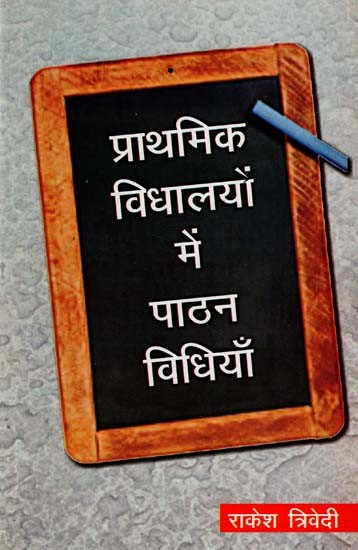 प्राथमिक
विधालयों
में
पाठन
विधियाँ
राकेश त्रिवेदी